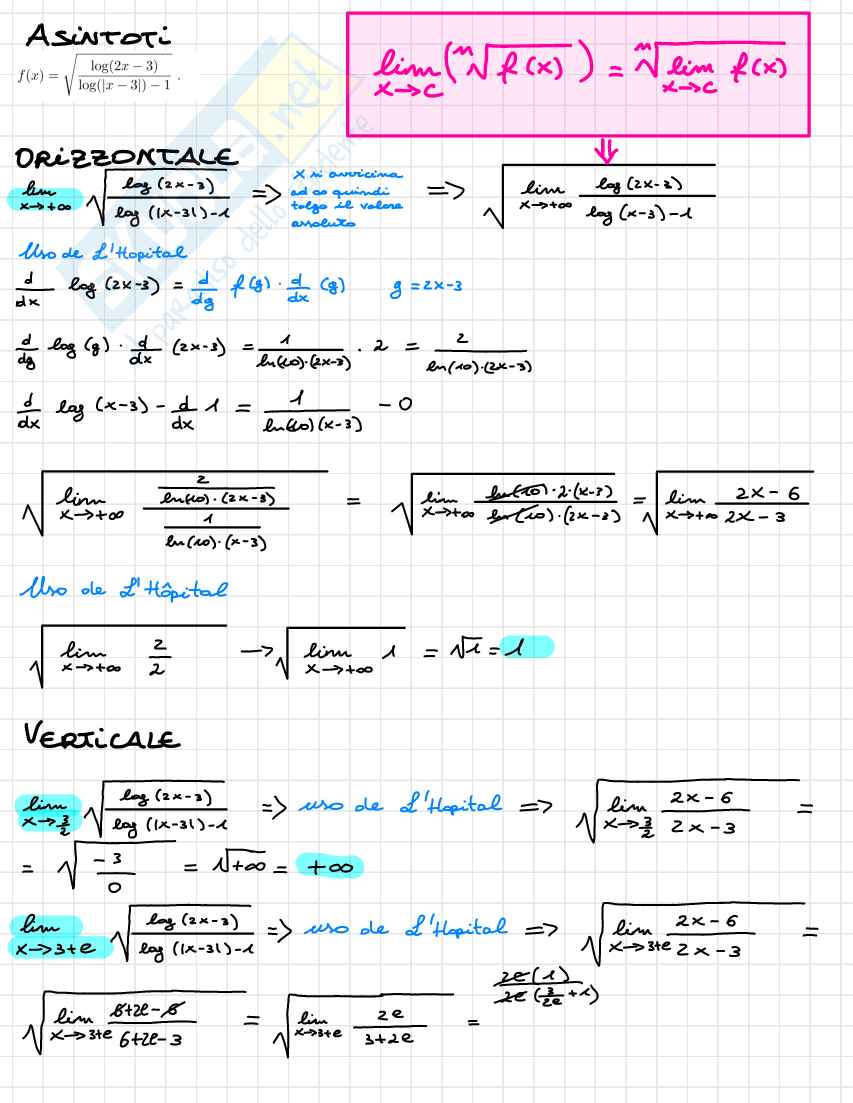 ASINTOTI
f(x) = √(log(2x − 3) / (log(|x − 3|) − 1)) .
lim x→c (ⁿ√f(x)) = ⁿ√(lim x→c f(x))
⇓
ORIZZONTALE
lim x→+∞ √(log(2x-3) / (log(|x-3|)-1)) => x si avvicina ad ∞ quindi tolgo il valore assoluto => √(lim x→+∞ log(2x-3) / (log(x-3)-1))
Uso de L'Hopital
d/dx log(2x-3) = d/dg f(g) · d/dx (g) g = 2x-3
d/dg log(g) · d/dx (2x-3) = 1/(ln(10)·(2x-3)) · 2 = 2/(ln(10)·(2x-3))
d/dx log(x-3) - d/dx 1 = 1/(ln(10)(x-3)) - 0
√(lim x→+∞ (2/(ln(10)·(2x-3))) / (1/(ln(10)·(x-3)))) = √(lim x→+∞ (ln(10)·2·(x-3)) / (ln(10)·(2x-3))) = √(lim x→+∞ (2x-6)/(2x-3))
Uso de L'Hôpital
√(lim x→+∞ 2/2) → √(lim x→+∞ 1) = √1 = 1
VERTICALE
lim x→3/2 √(log(2x-3) / (log(|x-3|)-1)) => uso de L'Hopital => √(lim x→3/2 (2x-6)/(2x-3)) =
= √(-3/0) = √+∞ = +∞
lim x→3+e √(log(2x-3) / (log(|x-3|)-1)) => uso de L'Hopital => √(lim x→3+e (2x-6)/(2x-3)) =
√(lim x→3+e (6+2e-6)/(6+2e-3)) = √(lim x→3+e 2e/(3+2e)) = 2e(1) / 2e(3/2e + 1)